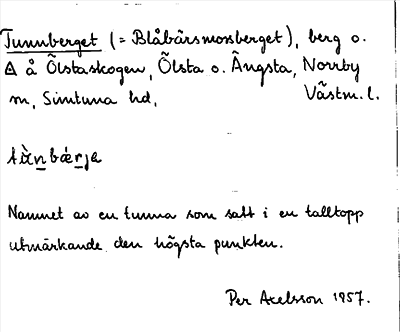 Tunnberget (= Blåbärsmossberget), berg o.
∆ å Ölstaskogen, Ölsta o. Ängsta, Norrby
m, Simtuna hd, Västm. l.
tùnbǽrja
Namnet av en tunna som satt i en talltopp
utmärkande den högsta punkten.
Per Axelsson 1957.